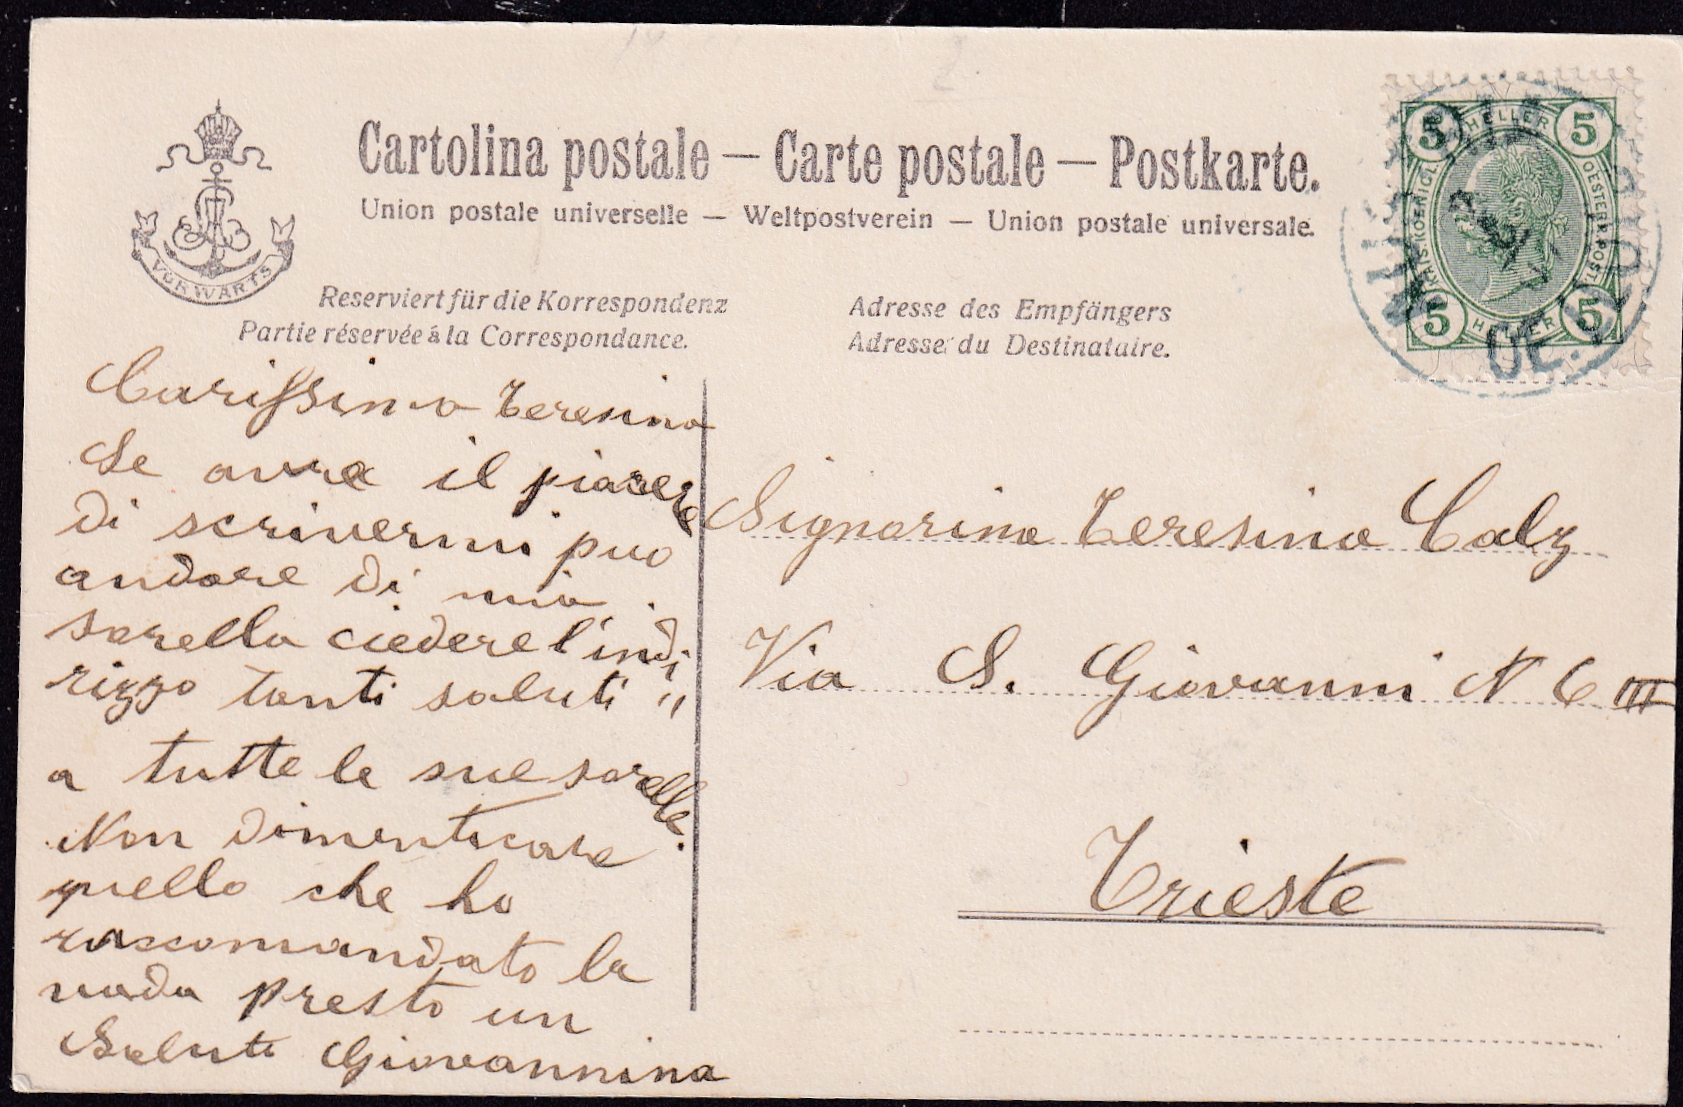 Cartolina postale — Carte postale — Postkarte.
Union postale universelle — Weltpostverein — Union postale universale.
VORWÄRTS
Reserviert für die Korrespondenz
Partie réservée á la Correspondance.
Adresse des Empfängers
Adresse du Destinataire.
5 HELLER 5
KAIS. KOENIGL.
OESTERR. POST
5 HELLER 5
Carissima Teresina
Se avra il piacere
di scrivermi puo
andare di mia
sorella ciedere l'indi
rizzo tanti saluti "
a tutte le sue sorelle.
Non dimenticare
quello che ho
raccomandato la
vada presto un
Saluti Giovannina
Signorina Teresina Calz
Via S. Giovanni N 6 III
Trieste